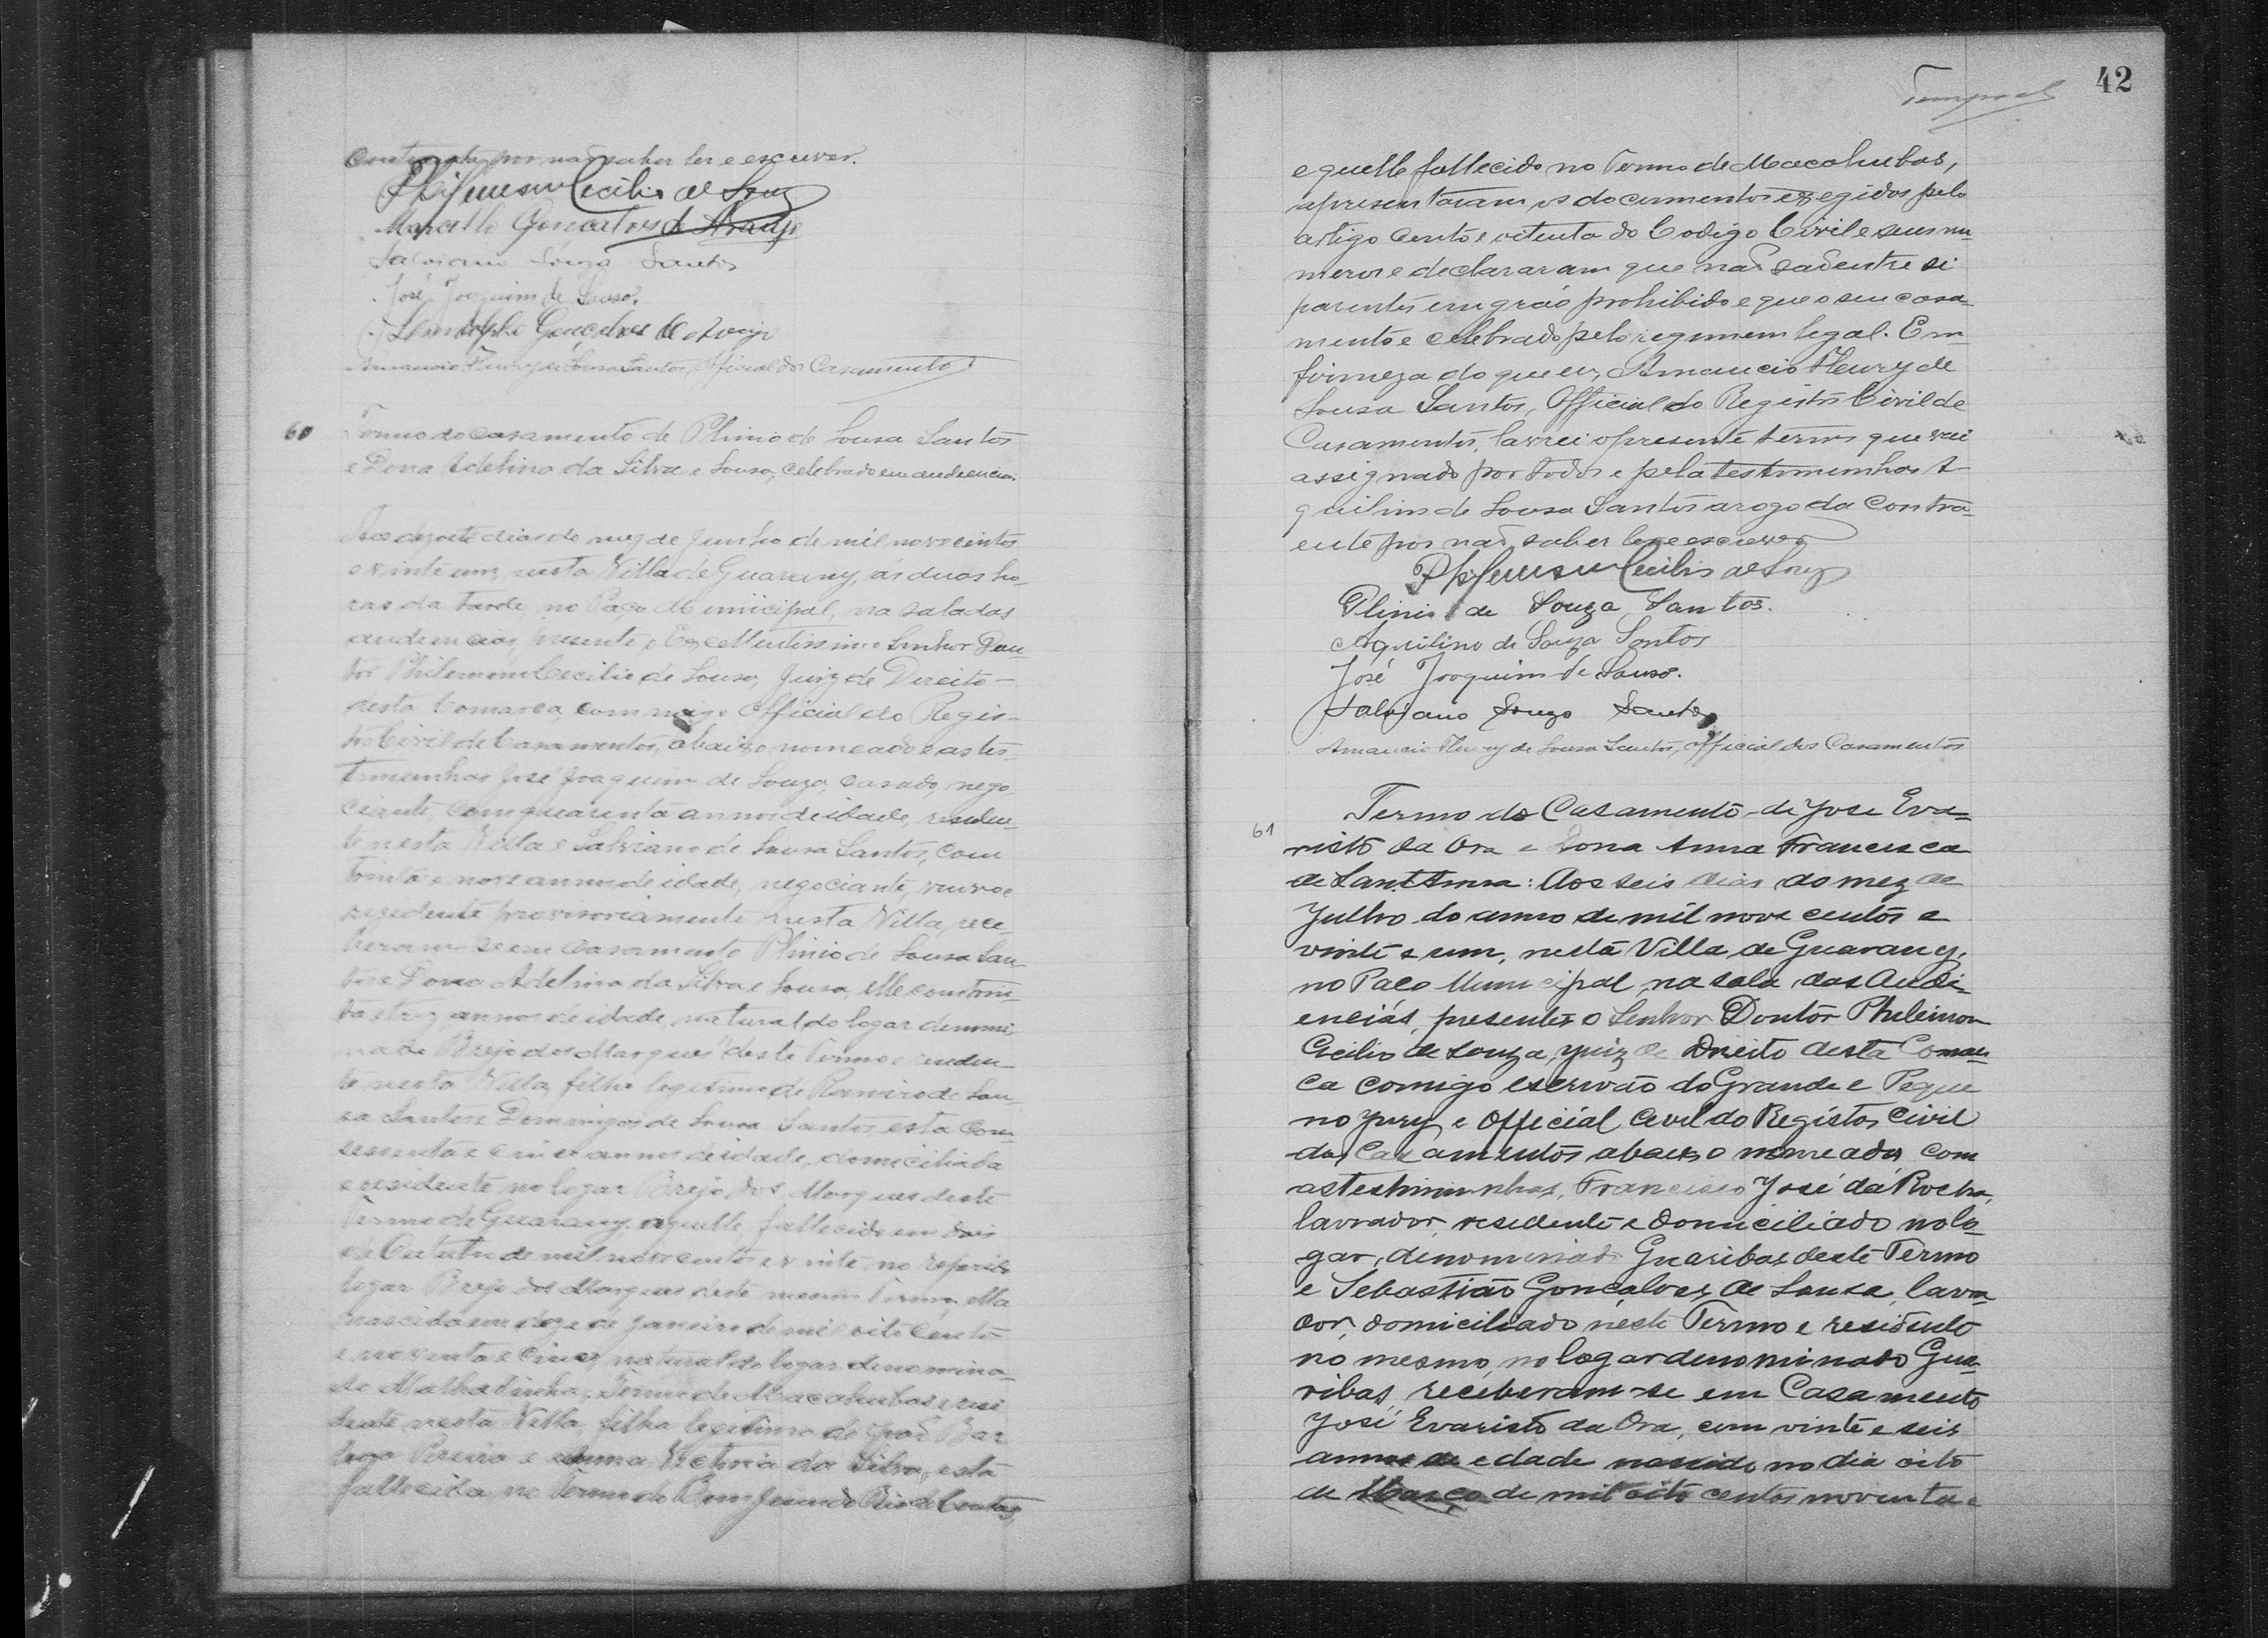 Contrahente por não saber ler e escrever.
Philemon Cecilio de Souz
Marcello Gonçalves de Araujo
Salviano Souza Santos
José Joaquim de Souso.
Gonçalves de Araujo
Amancio Fleury de Sousa Santos, Official dos Casamentos
60 Termo do casamento de Plinio de Sousa Santos
e Dona Adelina da Silva e Sousa, celebrado em audiencia.
Aos dezoito dias do mez de Junho de mil novecentos
e vinte um, nesta Villa de Guarany, ás duas ho-
ras da tarde, no Paço Municipal, na sala das
audiencias, presente o Excellentissimo Senhor Dou-
tor Philemon Cecilio de Sousa, Juiz de Direito
desta Comarca, commigo Official do Regis-
tro Civil de Casamentos, abaixo nomeado e as tes-
timunhas José Joaquim de Souza, casado, nego-
ciante, com quarenta annos de idade, residen-
te nesta Villa e Salviano de Sousa Santos, com
trinta e nove annos de idade, negociante, viuvo e
residente provisoriamente nesta Villa, rece-
beram-se em casamento Plinio de Sousa San-
tos e Dona Adelina da Silva e Sousa, elle com trin-
ta e trez annos de idade, natural do logar denomi-
nado Brejo dos Marques deste Termo e residen-
te nesta Villa, filho legitimo de Ramiro de Sou-
sa Santos e Domingas de Sousa Santos, esta com
sessenta e cinco annos de idade, domiciliada
e residente no logar Brejo dos Marques deste
Termo de Guarany, aquelle fallecido em dois
de Outubro de mil novecentos e vinte no referido
logar Brejo dos Marques deste mesmo Termo. Ella
nascida em doze de Janeiro de mil oito centos
e noventa e cinco, natural do logar denomina-
do Malhadinha, Termo de Macahubas e resi-
dente nesta Villa, filha legitima de João Bar
Pereira e Anna Victoria da Silva, esta
fallecida no Termo do Bom Jesus do Rio de Contas,
42
equelle fallecido no Termo de Macahubas,
apresentaram os documentos exegidos pelo
artigo cento e oitenta do Codigo Civil e seus nu-
meros e declararam que não são entre si
parentes em gráo prohibido e que o seu casa-
mento e celebrado pelo regimem legal. Em
firmeza do que eu, Amancio Fleury de
Sousa Santos, Official do Registro Civil de
Casamentos, lavrei o presente termo que vai
assignado por todos e pela testimunhas A-
quilino de Sousa Santos arogo da Contra-
ente por não saber ler e escrever
Philemon Cecilio de Souz
Plinio de Souza Santos.
Aquilino de Souza Santos
José Joaquim de Souso.
Salviano Souza Santos
Amancio Fleury de Sousa Santos, Official dos Casamentos
61 Termo do Casamento de José Eva=
risto da Ora e Dona Anna Francisca
de Sant'Anna: Aos seis dias do mez de
Julho do anno de mil nove centos e
vinte e um, nesta Villa de Guarany,
no Paço Municipal, na sala das Audi=
encias, presentes o Senhor Doutor Philemon
Cecilio de Souza, Juiz de Direito desta Comar=
ca comigo escrivão do Grande e Peque
no Jury e Official Civil do Registos Civil
dos Casamentos abaixo nomeados com
as testimunhas, Francisco José da Rocha,
lavrador, residente e domiciliado no lo-
gar, denominado Guaribas deste Termo
e Sebastião Gonçalves de Sousa, lavra
dor, domiciliado neste Termo e residente
no mesmo, no logar denominado Gua-
ribas, receberam-se em Casamento
José Evaristo da Ora, com vinte e seis
annos de edade nascido no dia oito
de Março de mil oito centos noventa e